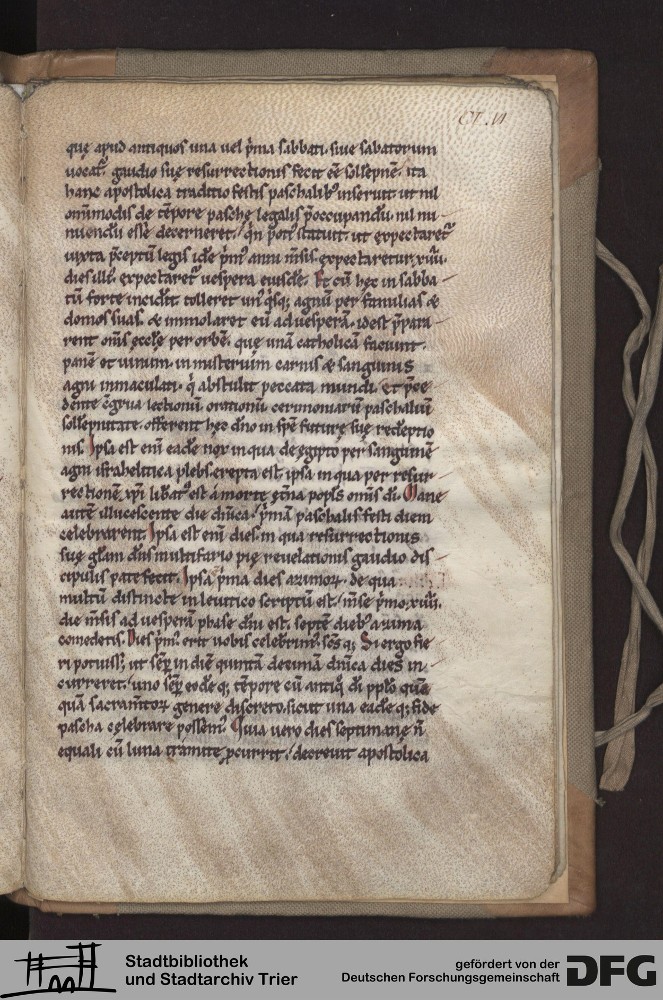 CLVI
quę apud antiquos una uel p̄ma sabbati. siue sabatorum
uocat̄. gaudio suę resurrectionis fecit eē sollēpnē. ita
hanc apostolica traditio festis paschalib; inseruit. ut nil
om̄imodis de tēpore paschę legalis p̄occupandū. nil mi
nuendū esse decerneret. Qn̄ poti᷒ statuit. ut expectaret᷑
iuxta p̄ceptū legis idē p̄m᷒ anni m̄sis. expectaretur. xiiii.
dies illi᷒. expectaret᷑ uespera eiusdē. Et cū hęc in sabba
tū forte inciderit tolleret un᷒q̇sq; agnū per familias &
domos suas. & immolaret eū ad uesperā. id est p̄para
rent om̄s ęcclę per orbē. quę unā catholicā faciunt.
panē et uinum. in misterium carnis & sanguinis
agni inmaculati. q̇ abstulit peccata mundi. et p̄ce
dente c̄grua lectionū orationū cerimoniarū paschaliū
sollēpnitate. offerrent hęc dn̄o in spē futurę suę redēptio
nis. Ipsa est eni᷒ eadē nox in qua de ęgipto per sanguinē
agni israhelitica plebs erepta est. ipsa in qua per resur
rectionē xp̄i lib̄at᷒ est a morte ęt̄na popl̄s om̄is di. Mane
autē illucescente die dn̄ica. p̄mā paschalis festi diem
celebrarent. Ipsa est eni᷒ dies. in qua resurrectionis
suę glām dn̄s multifario pię reuelationis gaudio dis
cipulis patefecit. Ipsa p̄ma dies azimoꝝ. de qua
multū distincte in leuitico scriptū est. m̄se p̄mo. xiiii.
die m̄sis ad uesperā phase dn̄i est. septē dieb; azima
comedetis. Dies p̄m᷒ erit uobis celeb̄rim᷒. sc̄sq; Si ergo fie
ri potuiss&. ut sēp in diē quintā decimā dn̄ica dies in
curreret. uno sēp eodēq; tēpore cū antiq̇ di pp̄lo quā
quā sacram̄toꝝ genere discreto. sicut una eadēq; fide
pascha celebrare possem᷒. Quia uero dies septimanę n̄
ęquali cū luna tramite p̄currit. decreuit apostolica
Stadtbibliothek
und Stadtarchiv Trier
gefördert von der
Deutschen Forschungsgemeinschaft
DFG